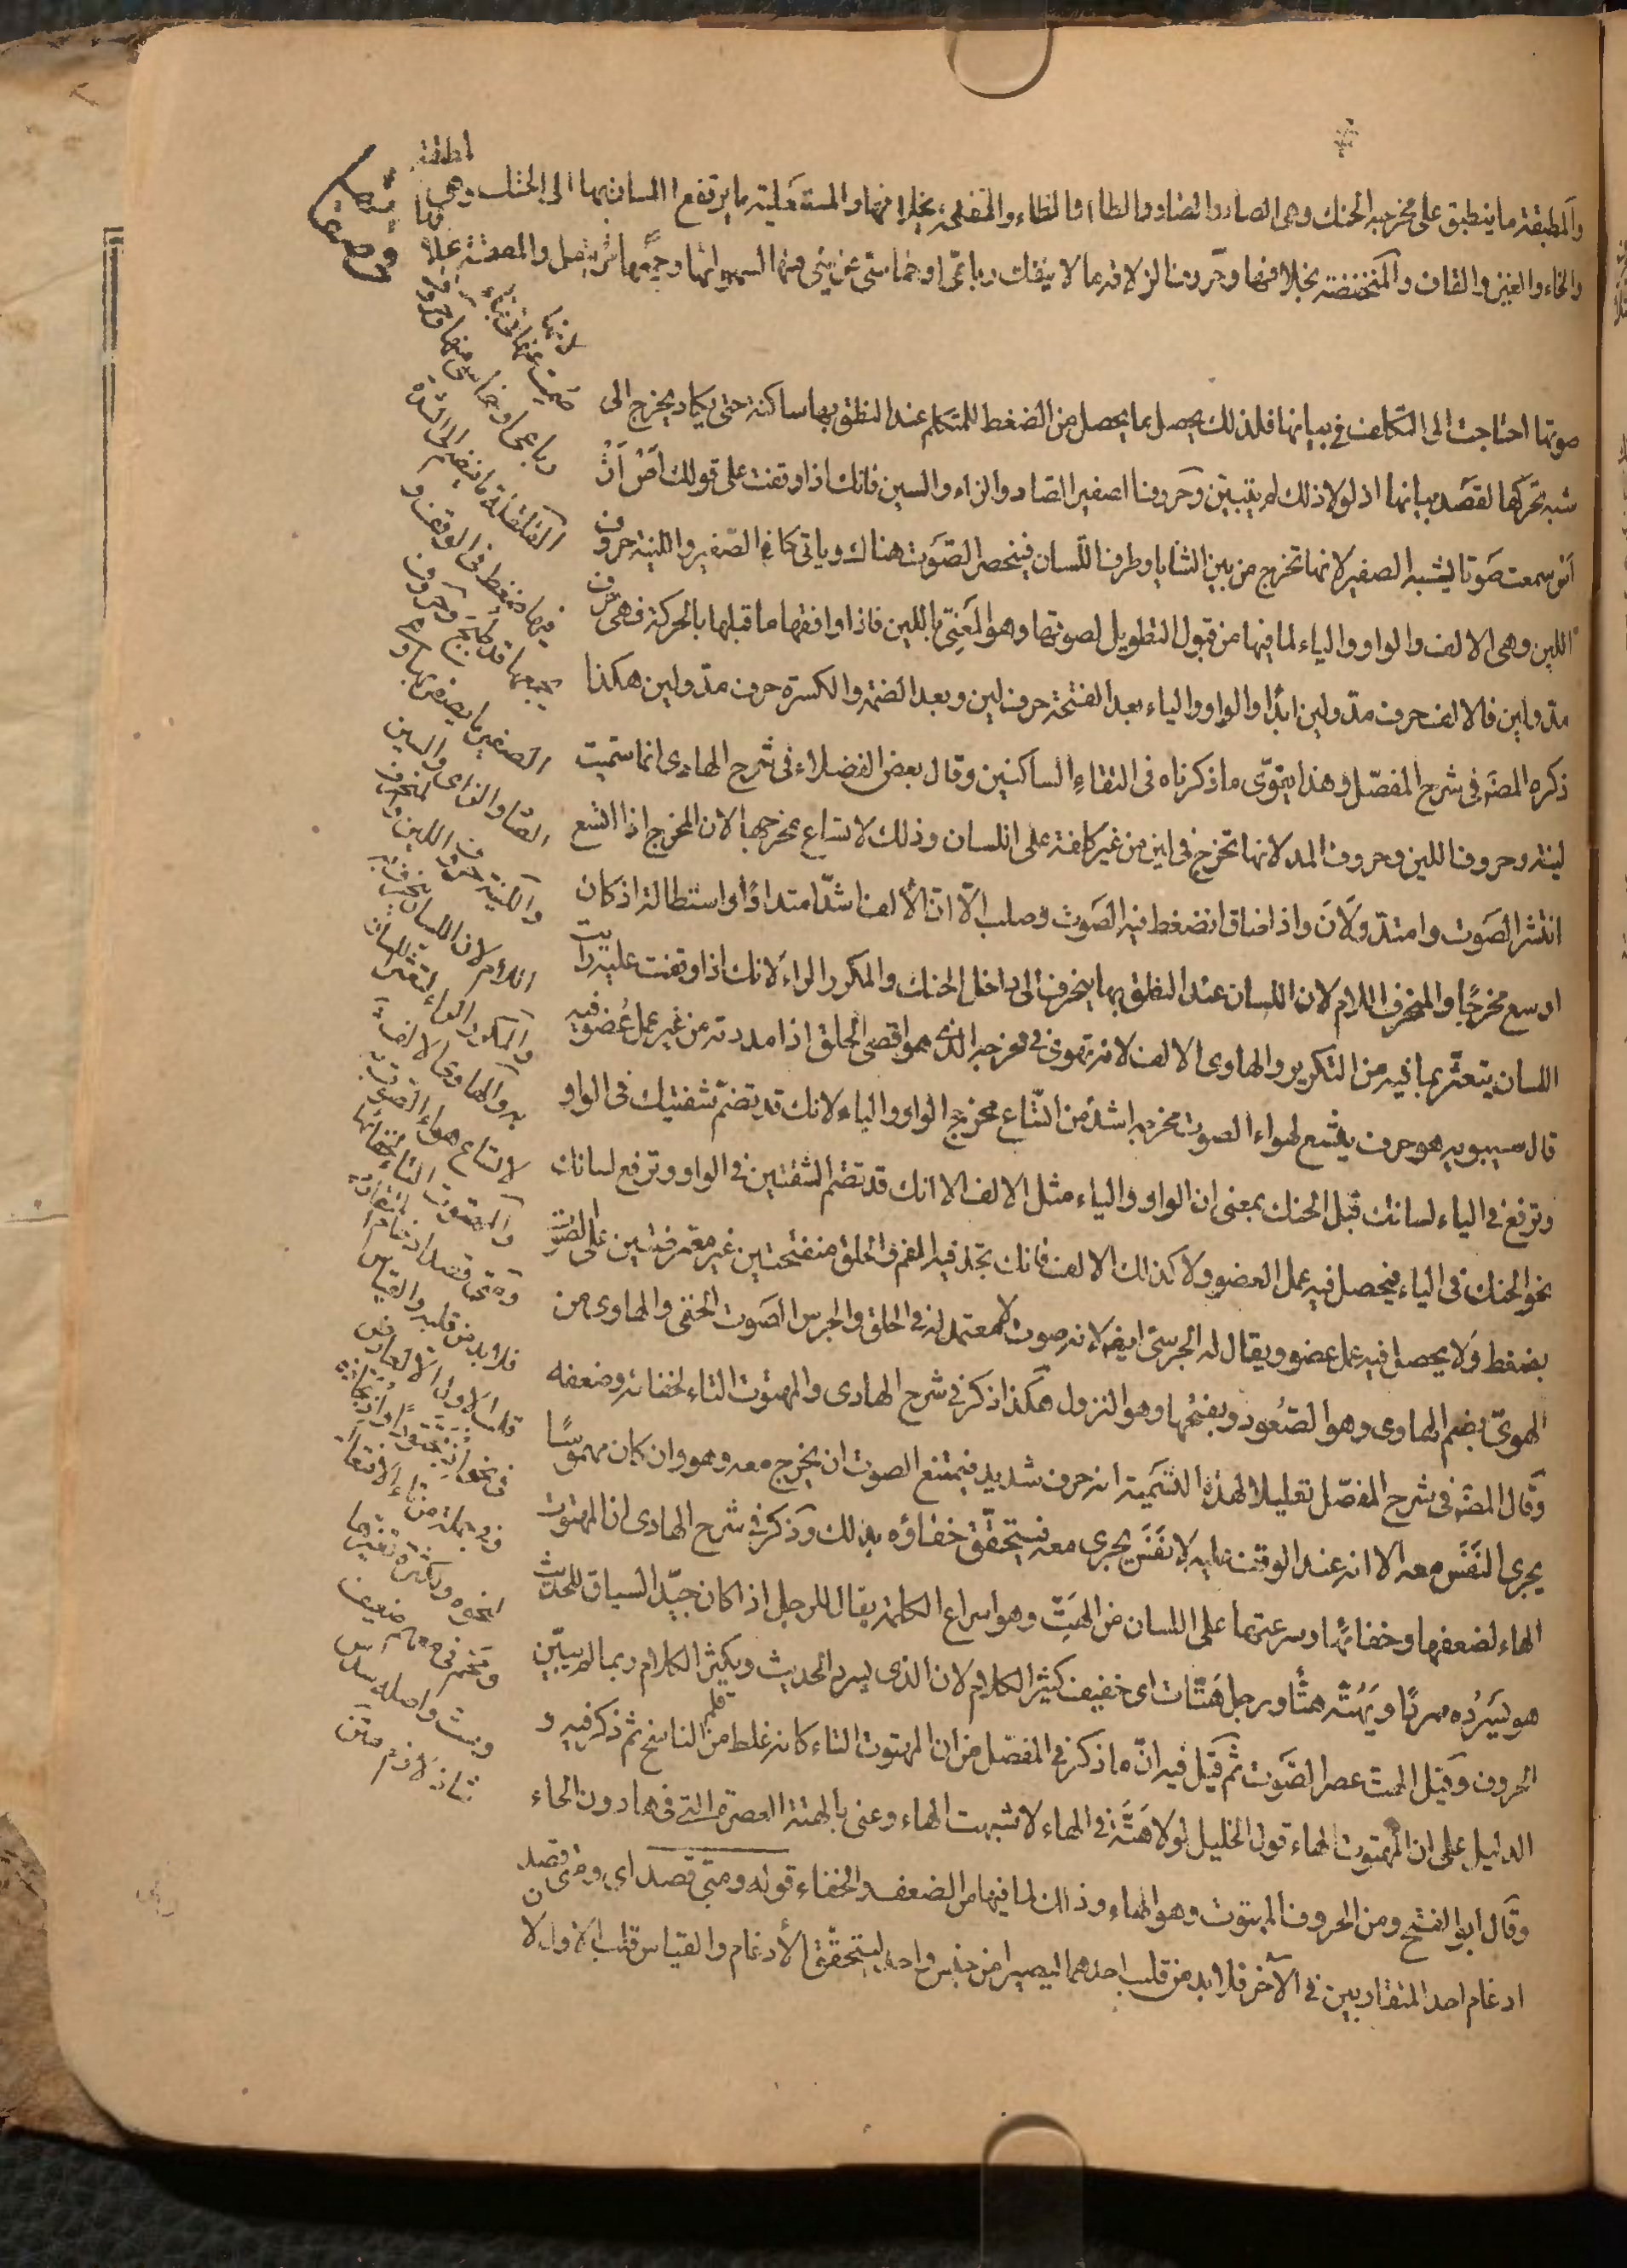 والمطبقة ما ينطبق على مخرجه الحنك وهى الصاد والضاد والطاء والظاء والمنفتحة بخلافها والمستعلية ما يرتفع اللسان بها الى الحنك وهى المطبقة
والخاء والغين والقاف والمنخفضة بخلافها وحروف الزلاقة ما لا ينفك رباعى او خماسى عن شئ منها لسهولتها وجمعها مر بنفل والمصمتة بخلافها
صوتها احتاجت الى التكلف فى بيانها فلذلك يحصل بما يحصل من الضغط للمتكلم عند النطق بها ساكنة حتى يكاد يخرج الى
شبه تحركها لقصد بيانها اذ لولا ذلك لم يتبين وحروف الصفير الصاد والزاء والسين فانك اذا وقفت على قولك اص از
اس سمعت صوتا يشبه الصفير لانها تخرج من بين الثنايا وطرف اللسان فينحصر الصوت هناك وياتى كالصفير واللينة حروف
اللين وهى الالف والواو والياء لما فيها من قبول التطويل لصوتها وهو المعنى باللين فاذا وافقها ما قبلها بالحركة فهى حرف
مد ولين فالالف حرف مد ولين ابدا والواو والياء بعد الفتحة حرف لين وبعد الضمة والكسرة حرف مد ولين هكذا
ذكره المصنف فى شرح المفصل وهذا يقوى ما ذكرناه فى التقاء الساكنين وقال بعض الفضلاء فى شرح الهادى انما سميت
لينة وحروف اللين وحروف المد لانها تخرج فى لين من غير كلفة على اللسان وذلك لاتساع مخرجها لان المخرج اذا اتسع
انتشر الصوت وامتد ولان واذا ضاق انضغط فيه الصوت وصلب الا ان الالف اشد امتدادا او استطالة اذ كان
اوسع مخرجا والمنحرف اللام لان اللسان عند النطق بها ينحرف الى داخل الحنك والمكرر الراء لانك اذا وقفت عليه رايت
اللسان يتعثر بما فيه من التكرير والهاوى الالف لانه يهوى فى مخرجه الذى هو اقصى الحلق اذا مددته من غير عمل عضو فيه
قال سيبويه هو حرف يتسع لهواء الصوت مخرجه اشد من اتساع مخرج الواو والياء لانك قد تضم شفتيك فى الواو
وترفع فى الياء لسانك قبل الحنك بمعنى ان الواو والياء مثل الالف الا انك قد تضم الشفتين فى الواو وترفع لسانك
نحو الحنك فى الياء فيحصل فيه عمل العضو ولا كذلك الالف فانك تجد فيه الفم والحلق منفتحتين غير معترضتين على الصوت
بضغط ولا يحصل فيه عمل عضو ويقال له الجرسى ايضا لانه صوت لا معتمد له فى الحلق والجرس الصوت الخفى والهاوى من
الهوى بضم الهاوى وهو الصعود وبفتحها وهو النزول هكذا ذكر فى شرح الهادى والمهتوت التاء لخفائه وضعفه
وقال المصنف فى شرح المفصل تعليلا لهذه التسمية انه حرف شديد فيمتنع الصوت ان يخرج معه وهو وان كان مهموسا
يجرى النفس معه الا انه عند الوقف عليه لا نفس يجرى معه فيتحقق خفاؤه بذلك وذكر فى شرح الهادى ان المهتوت
الهاء لضعفها وخفائها وسرعتها على اللسان من الهت وهو اسراع الكلام يقال للرجل اذا كان جيد السياق للحديث
هو يسرده سردا ويهته هتا ورجل هتات اى خفيف كثير الكلام لان الذى يسرد الحديث ويكثر الكلام ربما لم يبين
الحروف وقيل الهت عصر الصوت ثم قيل فيه ان ما ذكر فى المفصل من ان المهتوت التاء كانه غلط من قلم الناسخ ثم ذكر فيه و
الدليل على ان المهتوت الهاء قول الخليل لولا هتة فى الهاء لاشبهت الهاء وعنى بالهتة العصرة التى فيها دون الحاء
وقال ابو الفتح ومن الحروف المهتوت وهو الهاء وذلك لما فيها من الضعف والخفاء قوله ومتى قصد اى ومتى قصد
ادغام احد المتقاربين فى الاخر فلا بد من قلب احدهما ليصيرا من جنس واحد ليتحقق الادغام والقياس قلب الاول لا
لانها
صمت عنها فى بناء
رباعى او خماسى منها وحروف
القلقلة ما ينضم الى الشدة
فيها ضغط فى الوقف و
يجمعها قد طبج وحروف
الصفير ما يصفر بها و
الصاد والزاى والسين
واللينة حروف اللين والمنحرف
اللام لان اللسان ينحرف به
والمكرر الراء لتعثر اللسان
به والهاوى الالف
لاتساع هواء الصوت به
والمهتوت التاء لخفائها
ومتى قصد ادغام المتقارب
فلا بد من قلبه والقياس
قلب الاول الا لعارض
فى نحو اذبحتودا واذبحاذه
وفى جملة من تاء الافتعال
لنحوه ولكثرة تغيرها
ومحم فى معهم ضعيف
وست واصله سدس
شاذ لازم متن